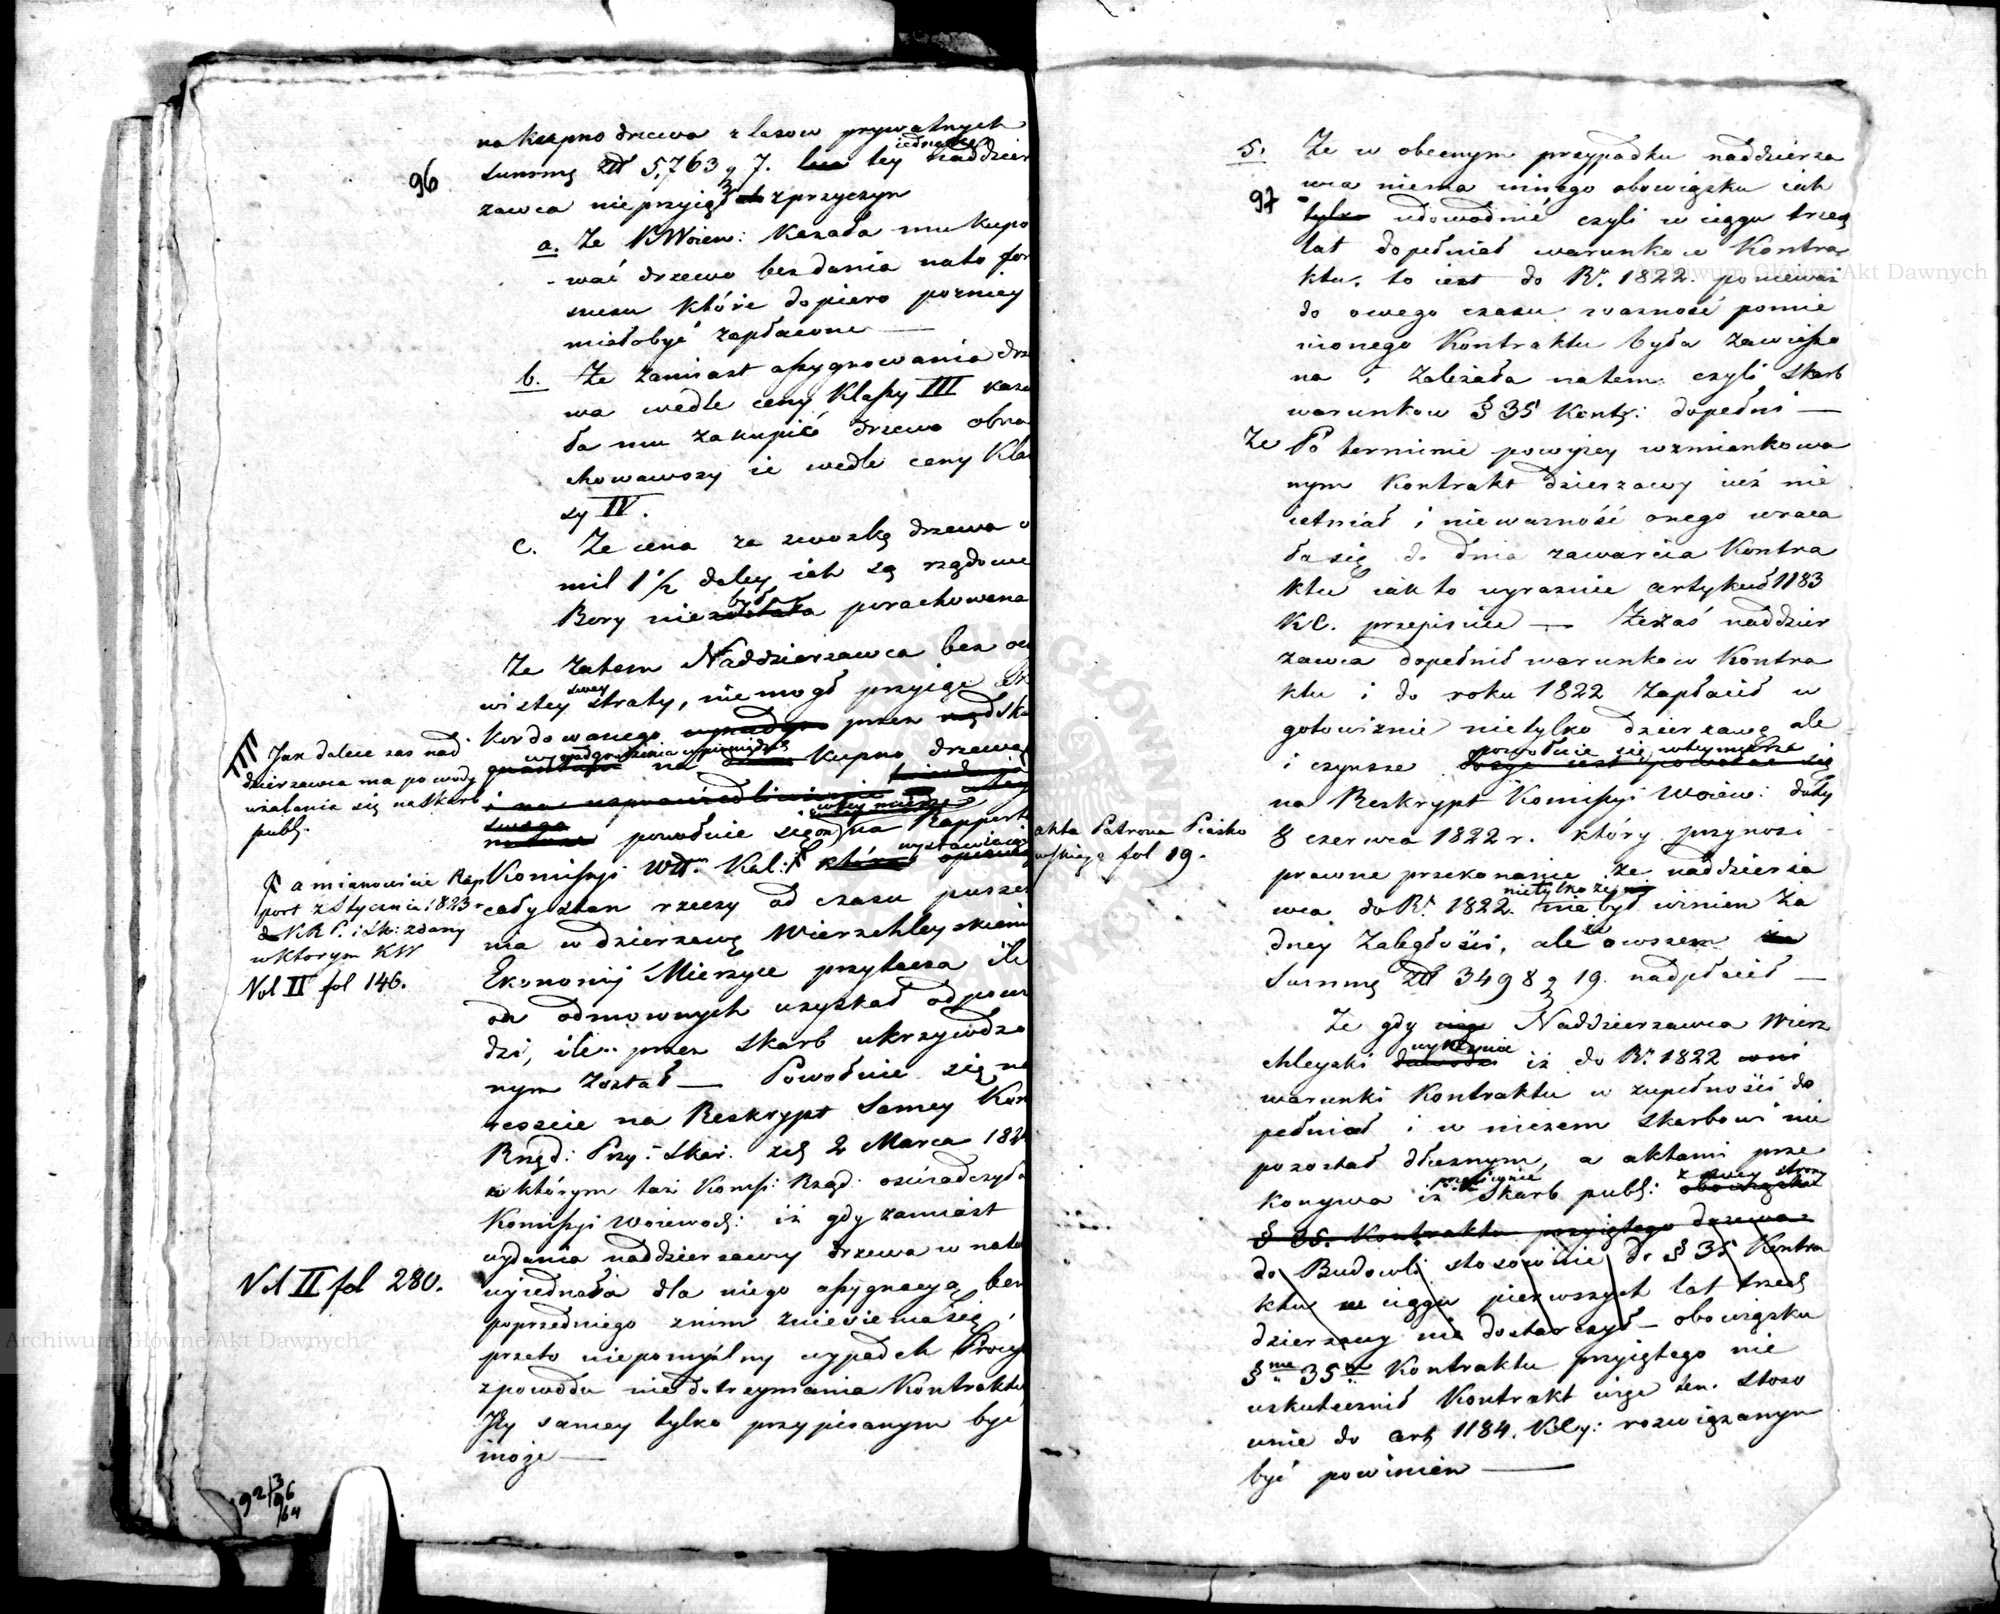 96
na kupno drzewa z lasow prywatnych
iednakże
summę Zł 5,763 g 7. tey naddzier
zawca nieprzyiął z przyczyn
a. Że KWoiew: Kazała mu kupo
wać drzewo bez dania nato fon
suszu które dopiero pozniey
miałobyć zapłacone —
b. Że zamiast assygnowania drze
wa wedle ceny Klassy III kaza
ła mu zakupić drzewo obra
chowawszy ie wedle ceny Klas
sy IV.
c. Że cena za zwozkę drzewa o
mil 1 1/2 daley iak są rządowe
była
Bory nie porachowana
Że zatem Naddzierzawca bez ocz
swey
wistey straty, niemogł przyiąc
przez Ska
wynadgrodzenia w pieniądzach
na kupno drzewa
wtey mierze
powołuie się on na Rapport
Komissyi Wdt. Kal:
cały stan rzeczy od czasu puszcze
nia w dzierzawę Wierzchleyskiemu
Ekonomij Mierzyce przytacza ile
on odmownych uzyskał odpowie
dzi, ile przez Skarb ukrzywdzo
nym został — Powołuie się na
reszcie na Reskrypt Samey Kom
Rząd: Przy: i Skar: zd 2 Marca 182
w którym taż Komss: Rząd: oświadczyła
Komissyi Woiewodz: iż gdy zamiast
wydania naddzierzawcy drzewa w natu
wyiednała dla niego assygnacyą bez
poprzedniego znim zniesienia się
przeto niepomyślny wypadek Process
zpowodu niedotrzymania Kontraktu
Jey samey tylko przypisanym być
może —
Jak dalece zas nad
dzierzawca ma powody
uzalania się na Skarb
publ.
a mianowicie Rap
port z Stycznia 1823 r
KRP. i Sk: zdany
w ktorym KW
Vol II fol 146.
Vol II fol 280.
5.
97
Że w obecnym przypadku naddzierza
wca niema innego obowiązku iak
tylko udowodnić czyli w ciągu trzech
lat dopełniał warunkow Kontra
ktu, to iest do Rn. 1822. ponieważ
do owego czasu wazność pomie
nionego Kontraktu była zawieszo
na i zależała natem: czyli Skarb
warunkow § 35 Kontr: dopełni —
Że Po terminie powyżey wzmiankowa
nym Kontrakt dzierzawy iuż nie
istniał i niewazność onego wraca
ła się do dnia zawarcia Kontra
ktu iak to wyraznie artykuł 1183
KC. przepisuie — Żezaś naddzier
zawca dopełnił warunkow Kontra
ktu i do roku 1822 zapłacił w
gotowiznie nietylko dzierzawę ale
powołuie się wtey mierze
i czynsze
na Reskrypt Komissyi Woiew: daty
8 czerwca 1822 r. który przynosi
prawne przekonanie, że naddzierza
nietylko że nie
wca do Rn 1822. był winien ża
dney zaległości, ale owszem
Summę Zł 3498 g 19. nadpłacił —
Że gdy Naddzierzawca Wierz
wykazuie
chleyski iż do Rn. 1822
warunki Kontraktu w zupełności do
pełniał i w niczem Skarbowi nie
pozostał dłużnym, a aktami prze
przeciwnie z swey strony
konywa iż Skarb publ:
§ 35. Kontraktu przyiętego drzewa
do Budowli stosownie do § 35 Kontra
ktu w ciągu pierwszych lat trzech
dzierzawy nie dostarczył — obowiązku
§me 35m Kontraktu przyiętego nie
uskutecznił Kontrakt więc ten stoso
wnie do art 1184. KCy: rozwiązanym
być powinien —
akta Patrona Piasko
wskiego fol 19.
92
3
96
64
Archiwum Główne Akt Dawnych
Archiwum Główne Akt Dawnych